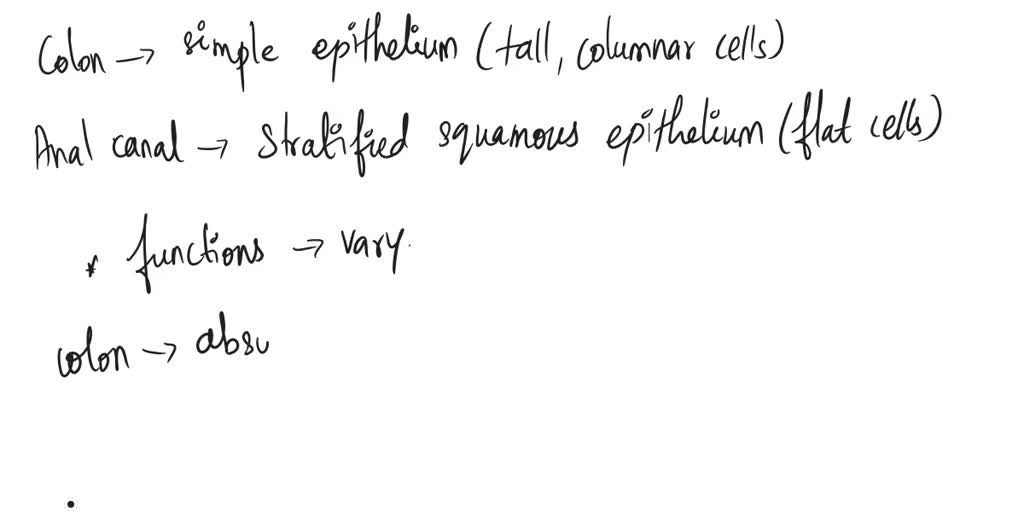 Colon → simple epithelium (tall, columnar cells)
Anal canal → stratified squamous epithelium (flat cells)
* functions → vary.
colon → abso